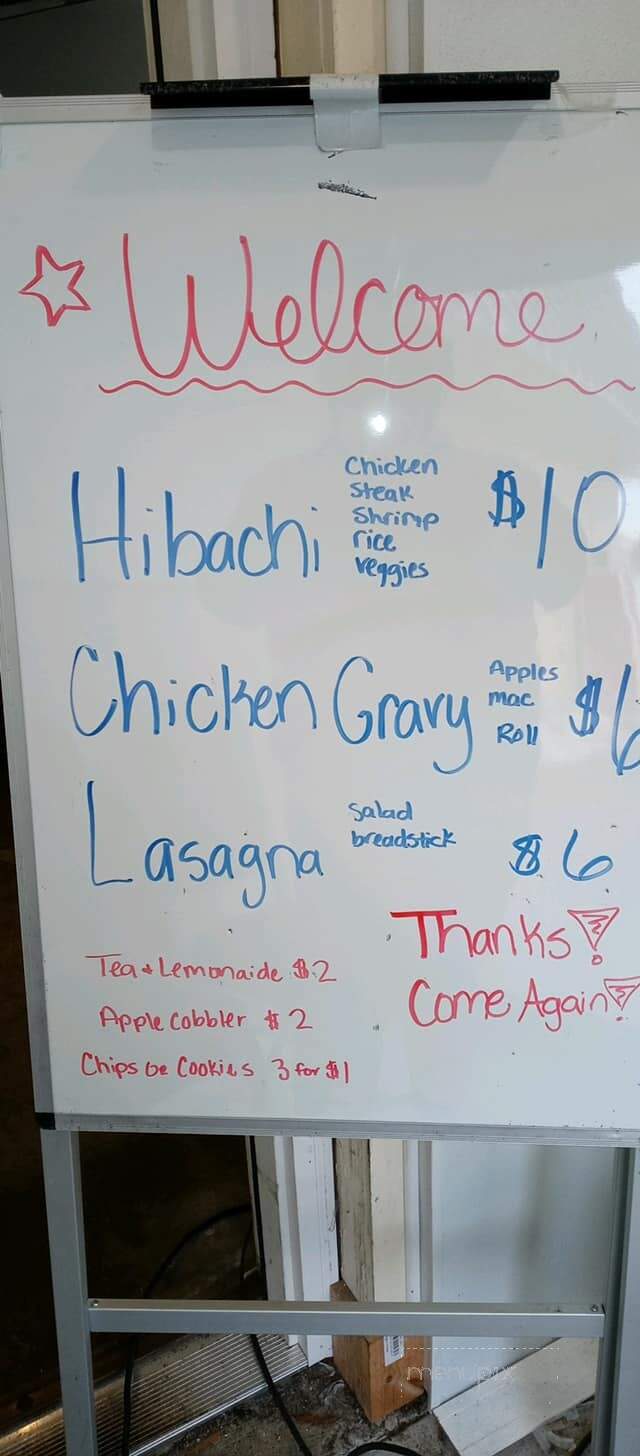 Welcome
Hibachi Chicken Steak Shrimp rice veggies $10
Chicken Gravy Apples mac Roll $6
Lasagna salad breadstick $6
Thanks!
Come Again!
Tea + Lemonaide $2
Apple Cobbler $2
Chips or Cookies 3 for $1
menupix